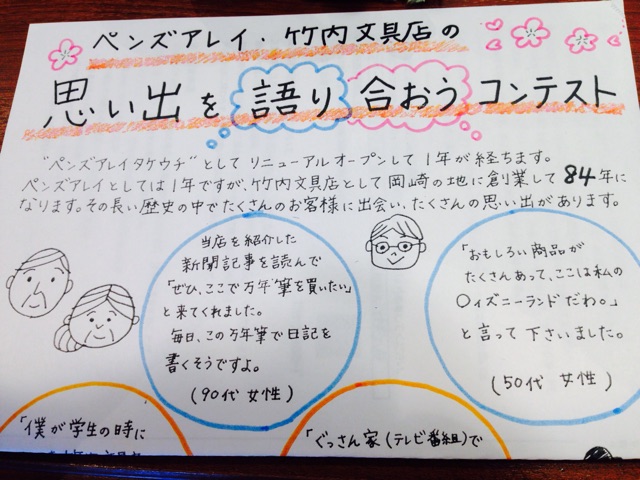 ペンズアレイ・竹内文具店の
思い出を語り合おうコンテスト
"ペンズアレイタケウチ"としてリニューアルオープンして1年が経ちます。
ペンズアレイとしては1年ですが、竹内文具店として岡崎の地に創業して84年に
なります。その長い歴史の中でたくさんのお客様に出会い、たくさんの思い出があります。
当店を紹介した
新聞記事を読んで
「ぜひ、ここで万年筆を買いたい」
と来てくれました。
毎日、この万年筆で日記を
書くそうですよ。
(90代 女性)
「おもしろい商品が
たくさんあって、ここは私の
○ィズニーランドだわ。」
と言って下さいました。
(50代 女性)
「僕が学生の時に
「ぐっさん家(テレビ番組)で